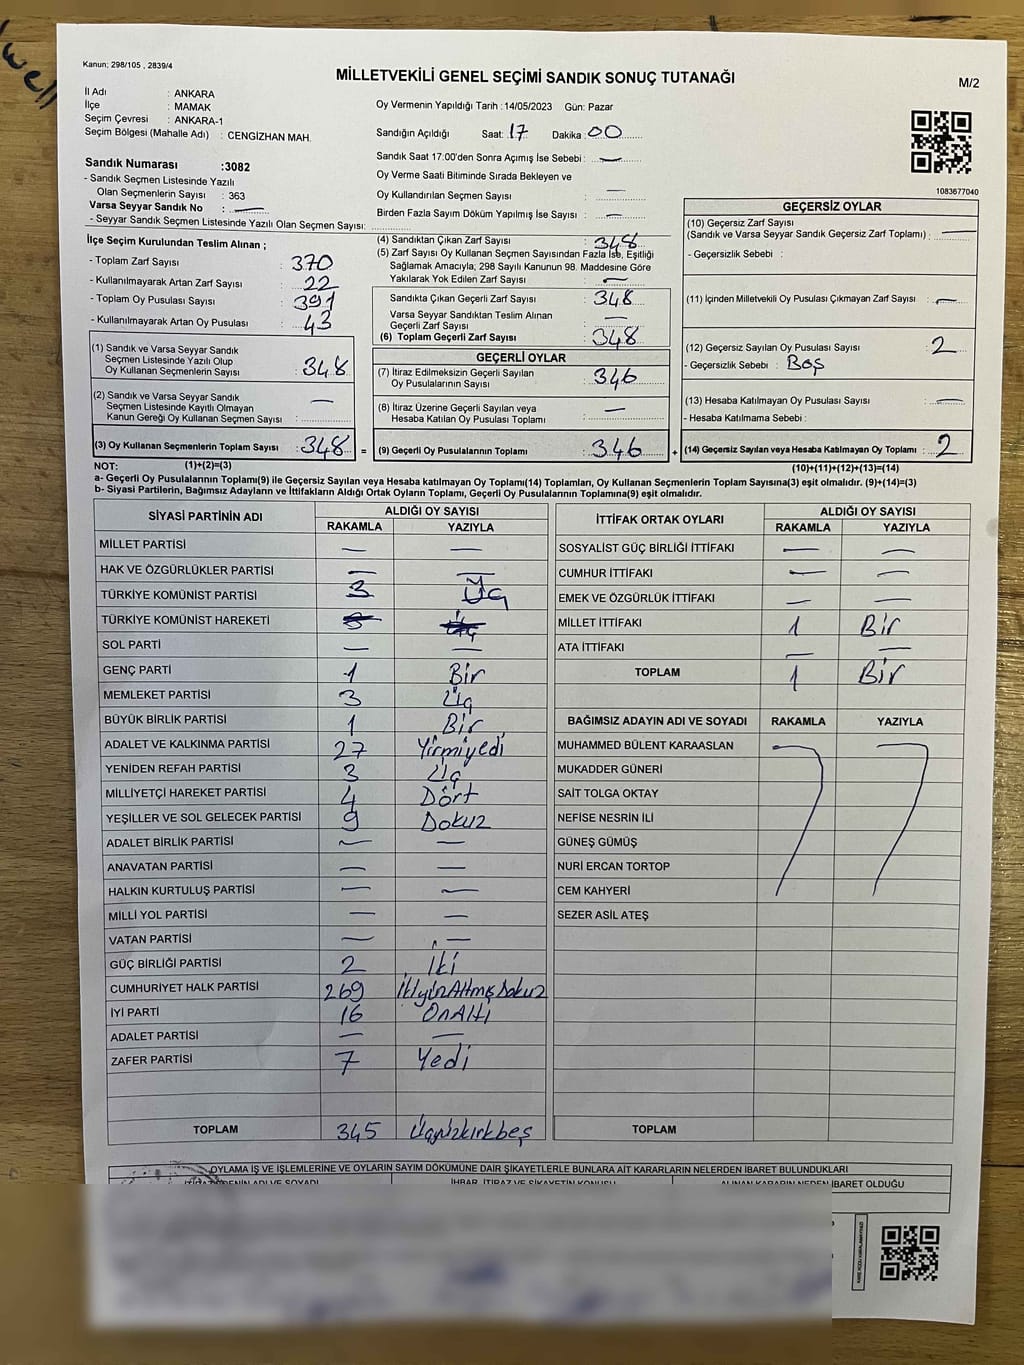 Kanun; 298/105 , 2839/4
MİLLETVEKİLİ GENEL SEÇİMİ SANDIK SONUÇ TUTANAĞI
M/2
İl Adı : ANKARA
İlçe : MAMAK
Seçim Çevresi : ANKARA-1
Seçim Bölgesi (Mahalle Adı) : CENGİZHAN MAH.
Oy Vermenin Yapıldığı Tarih : 14/05/2023 Gün: Pazar
Sandığın Açıldığı Saat: 17 Dakika: 00
Sandık Saat 17:00'den Sonra Açımış İse Sebebi : —
Oy Verme Saati Bitiminde Sırada Bekleyen ve
Oy Kullandırılan Seçmen Sayısı : —
Birden Fazla Sayım Döküm Yapılmış İse Sayısı : —
1083677040
Sandık Numarası :3082
- Sandık Seçmen Listesinde Yazılı
Olan Seçmenlerin Sayısı : 363
Varsa Seyyar Sandık No : —
- Seyyar Sandık Seçmen Listesinde Yazılı Olan Seçmen Sayısı:
İlçe Seçim Kurulundan Teslim Alınan ;
- Toplam Zarf Sayısı : 370
- Kullanılmayarak Artan Zarf Sayısı : 22
- Toplam Oy Pusulası Sayısı : 391
- Kullanılmayarak Artan Oy Pusulası : 43
(1) Sandık ve Varsa Seyyar Sandık
Seçmen Listesinde Yazılı Olup
Oy Kullanan Seçmenlerin Sayısı : 348
(2) Sandık ve Varsa Seyyar Sandık
Seçmen Listesinde Kayıtlı Olmayan
Kanun Gereği Oy Kullanan Seçmen Sayısı : —
(3) Oy Kullanan Seçmenlerin Toplam Sayısı : 348 =
(4) Sandıktan Çıkan Zarf Sayısı : 348
(5) Zarf Sayısı Oy Kullanan Seçmen Sayısından Fazla İse, Eşitliği
Sağlamak Amacıyla; 298 Sayılı Kanunun 98. Maddesine Göre
Yakılarak Yok Edilen Zarf Sayısı : —
Sandıkta Çıkan Geçerli Zarf Sayısı : 348
Varsa Seyyar Sandıktan Teslim Alınan
Geçerli Zarf Sayısı : —
(6) Toplam Geçerli Zarf Sayısı : 348
GEÇERLİ OYLAR
(7) İtiraz Edilmeksizin Geçerli Sayılan
Oy Pusulalarının Sayısı : 346
(8) İtiraz Üzerine Geçerli Sayılan veya
Hesaba Katılan Oy Pusulası Toplamı : —
(9) Geçerli Oy Pusulalarının Toplamı : 346 +
GEÇERSİZ OYLAR
(10) Geçersiz Zarf Sayısı
(Sandık ve Varsa Seyyar Sandık Geçersiz Zarf Toplamı) : —
- Geçersizlik Sebebi :
(11) İçinden Milletvekili Oy Pusulası Çıkmayan Zarf Sayısı : —
(12) Geçersiz Sayılan Oy Pusulası Sayısı : 2
- Geçersizlik Sebebi : Boş
(13) Hesaba Katılmayan Oy Pusulası Sayısı : —
- Hesaba Katılmama Sebebi :
(14) Geçersiz Sayılan veya Hesaba Katılmayan Oy Toplamı : 2
NOT: (1)+(2)=(3)
(10)+(11)+(12)+(13)=(14)
a- Geçerli Oy Pusulalarının Toplamı(9) ile Geçersiz Sayılan veya Hesaba katılmayan Oy Toplamı(14) Toplamları, Oy Kullanan Seçmenlerin Toplam Sayısına(3) eşit olmalıdır. (9)+(14)=(3)
b- Siyasi Partilerin, Bağımsız Adayların ve İttifakların Aldığı Ortak Oyların Toplamı, Geçerli Oy Pusulalarının Toplamına(9) eşit olmalıdır.
SİYASİ PARTİNİN ADI ALDIĞI OY SAYISI
RAKAMLA YAZIYLA
MİLLET PARTİSİ — —
HAK VE ÖZGÜRLÜKLER PARTİSİ — —
TÜRKİYE KOMÜNİST PARTİSİ 3 Üç
TÜRKİYE KOMÜNİST HAREKETİ
SOL PARTİ — —
GENÇ PARTİ 1 Bir
MEMLEKET PARTİSİ 3 Üç
BÜYÜK BİRLİK PARTİSİ 1 Bir
ADALET VE KALKINMA PARTİSİ 27 Yirmiyedi
YENİDEN REFAH PARTİSİ 3 Üç
MİLLİYETÇİ HAREKET PARTİSİ 4 Dört
YEŞİLLER VE SOL GELECEK PARTİSİ 9 Dokuz
ADALET BİRLİK PARTİSİ — —
ANAVATAN PARTİSİ — —
HALKIN KURTULUŞ PARTİSİ — —
MİLLİ YOL PARTİSİ — —
VATAN PARTİSİ — —
GÜÇ BİRLİĞİ PARTİSİ 2 İki
CUMHURİYET HALK PARTİSİ 269 İkiyüzAltmışDokuz
İYİ PARTİ 16 OnAltı
ADALET PARTİSİ — —
ZAFER PARTİSİ 7 Yedi
TOPLAM 345 Üçyüzkırkbeş
İTTİFAK ORTAK OYLARI ALDIĞI OY SAYISI
RAKAMLA YAZIYLA
SOSYALİST GÜÇ BİRLİĞİ İTTİFAKI — —
CUMHUR İTTİFAKI — —
EMEK VE ÖZGÜRLÜK İTTİFAKI — —
MİLLET İTTİFAKI 1 Bir
ATA İTTİFAKI — —
TOPLAM 1 Bir
BAĞIMSIZ ADAYIN ADI VE SOYADI RAKAMLA YAZIYLA
MUHAMMED BÜLENT KARAASLAN
MUKADDER GÜNERİ
SAİT TOLGA OKTAY
NEFİSE NESRİN İLİ
GÜNEŞ GÜMÜŞ
NURİ ERCAN TORTOP
CEM KAHYERİ
SEZER ASİL ATEŞ
TOPLAM
OYLAMA İŞ VE İŞLEMLERİNE VE OYLARIN SAYIM DÖKÜMÜNE DAİR ŞİKAYETLERLE BUNLARA AİT KARARLARIN NELERDEN İBARET BULUNDUKLARI
ADI VE SOYADI İHBAR, İTİRAZ VE ŞİKAYETİN KONUSU ALINAN KARARIN NEDEN İBARET OLDUĞU